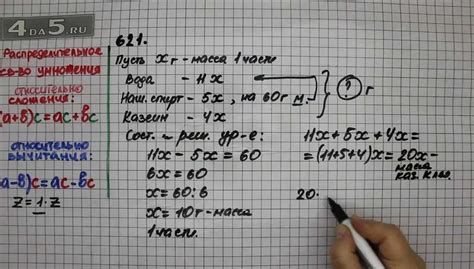 4DA5.RU
Распределительное
св-во умножения
относительно
сложения:
(а+в)с=ас+вс
относительно
вычитания:
(а-в)с=ас-вс
z=1·z
621.
Пусть х г - масса 1 части
Вода - 11х
Наш. спирт - 5х, на 60 г м.
Казеин - 4х
} ? г
Сост. - реш. ур-е:
11х - 5х = 60
6х = 60
х = 60:6
х = 10 г - масса
1 части.
11х + 5х + 4х =
= (11+5+4)х = 20х -
масса
каз. клея.
20·